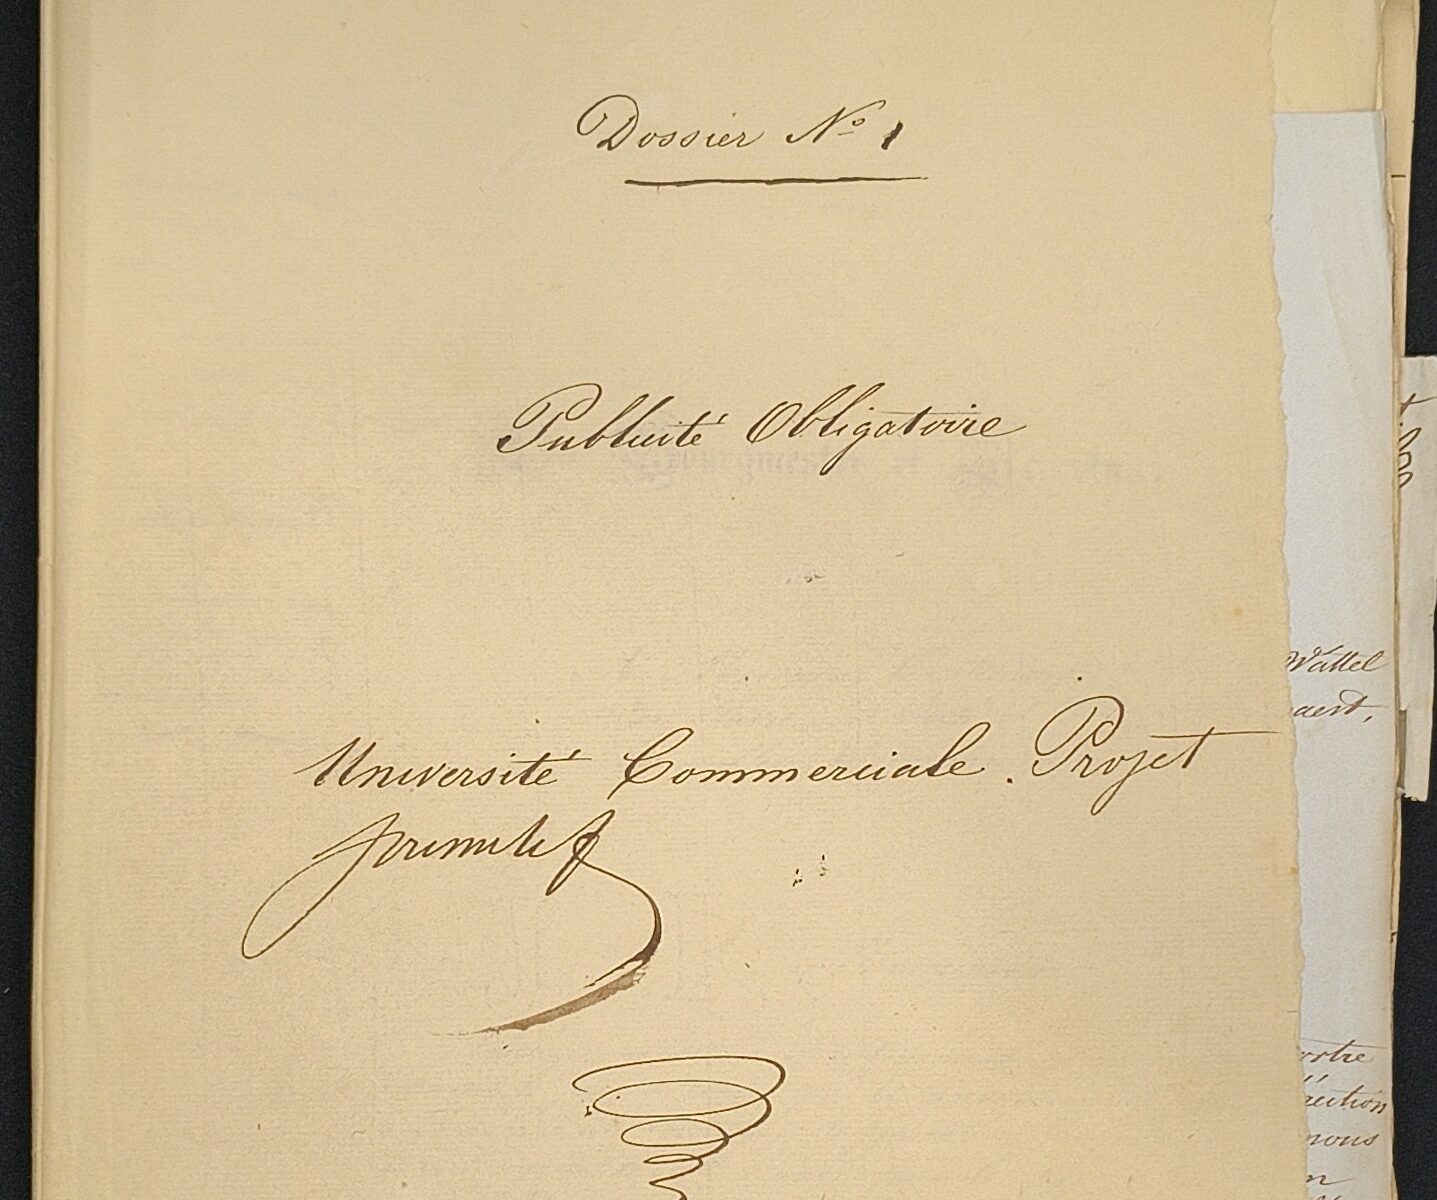 Dossier Nº 1
Publicité Obligatoire
Université Commerciale. Projet
primitif
Wattel
aert,
ection
nous